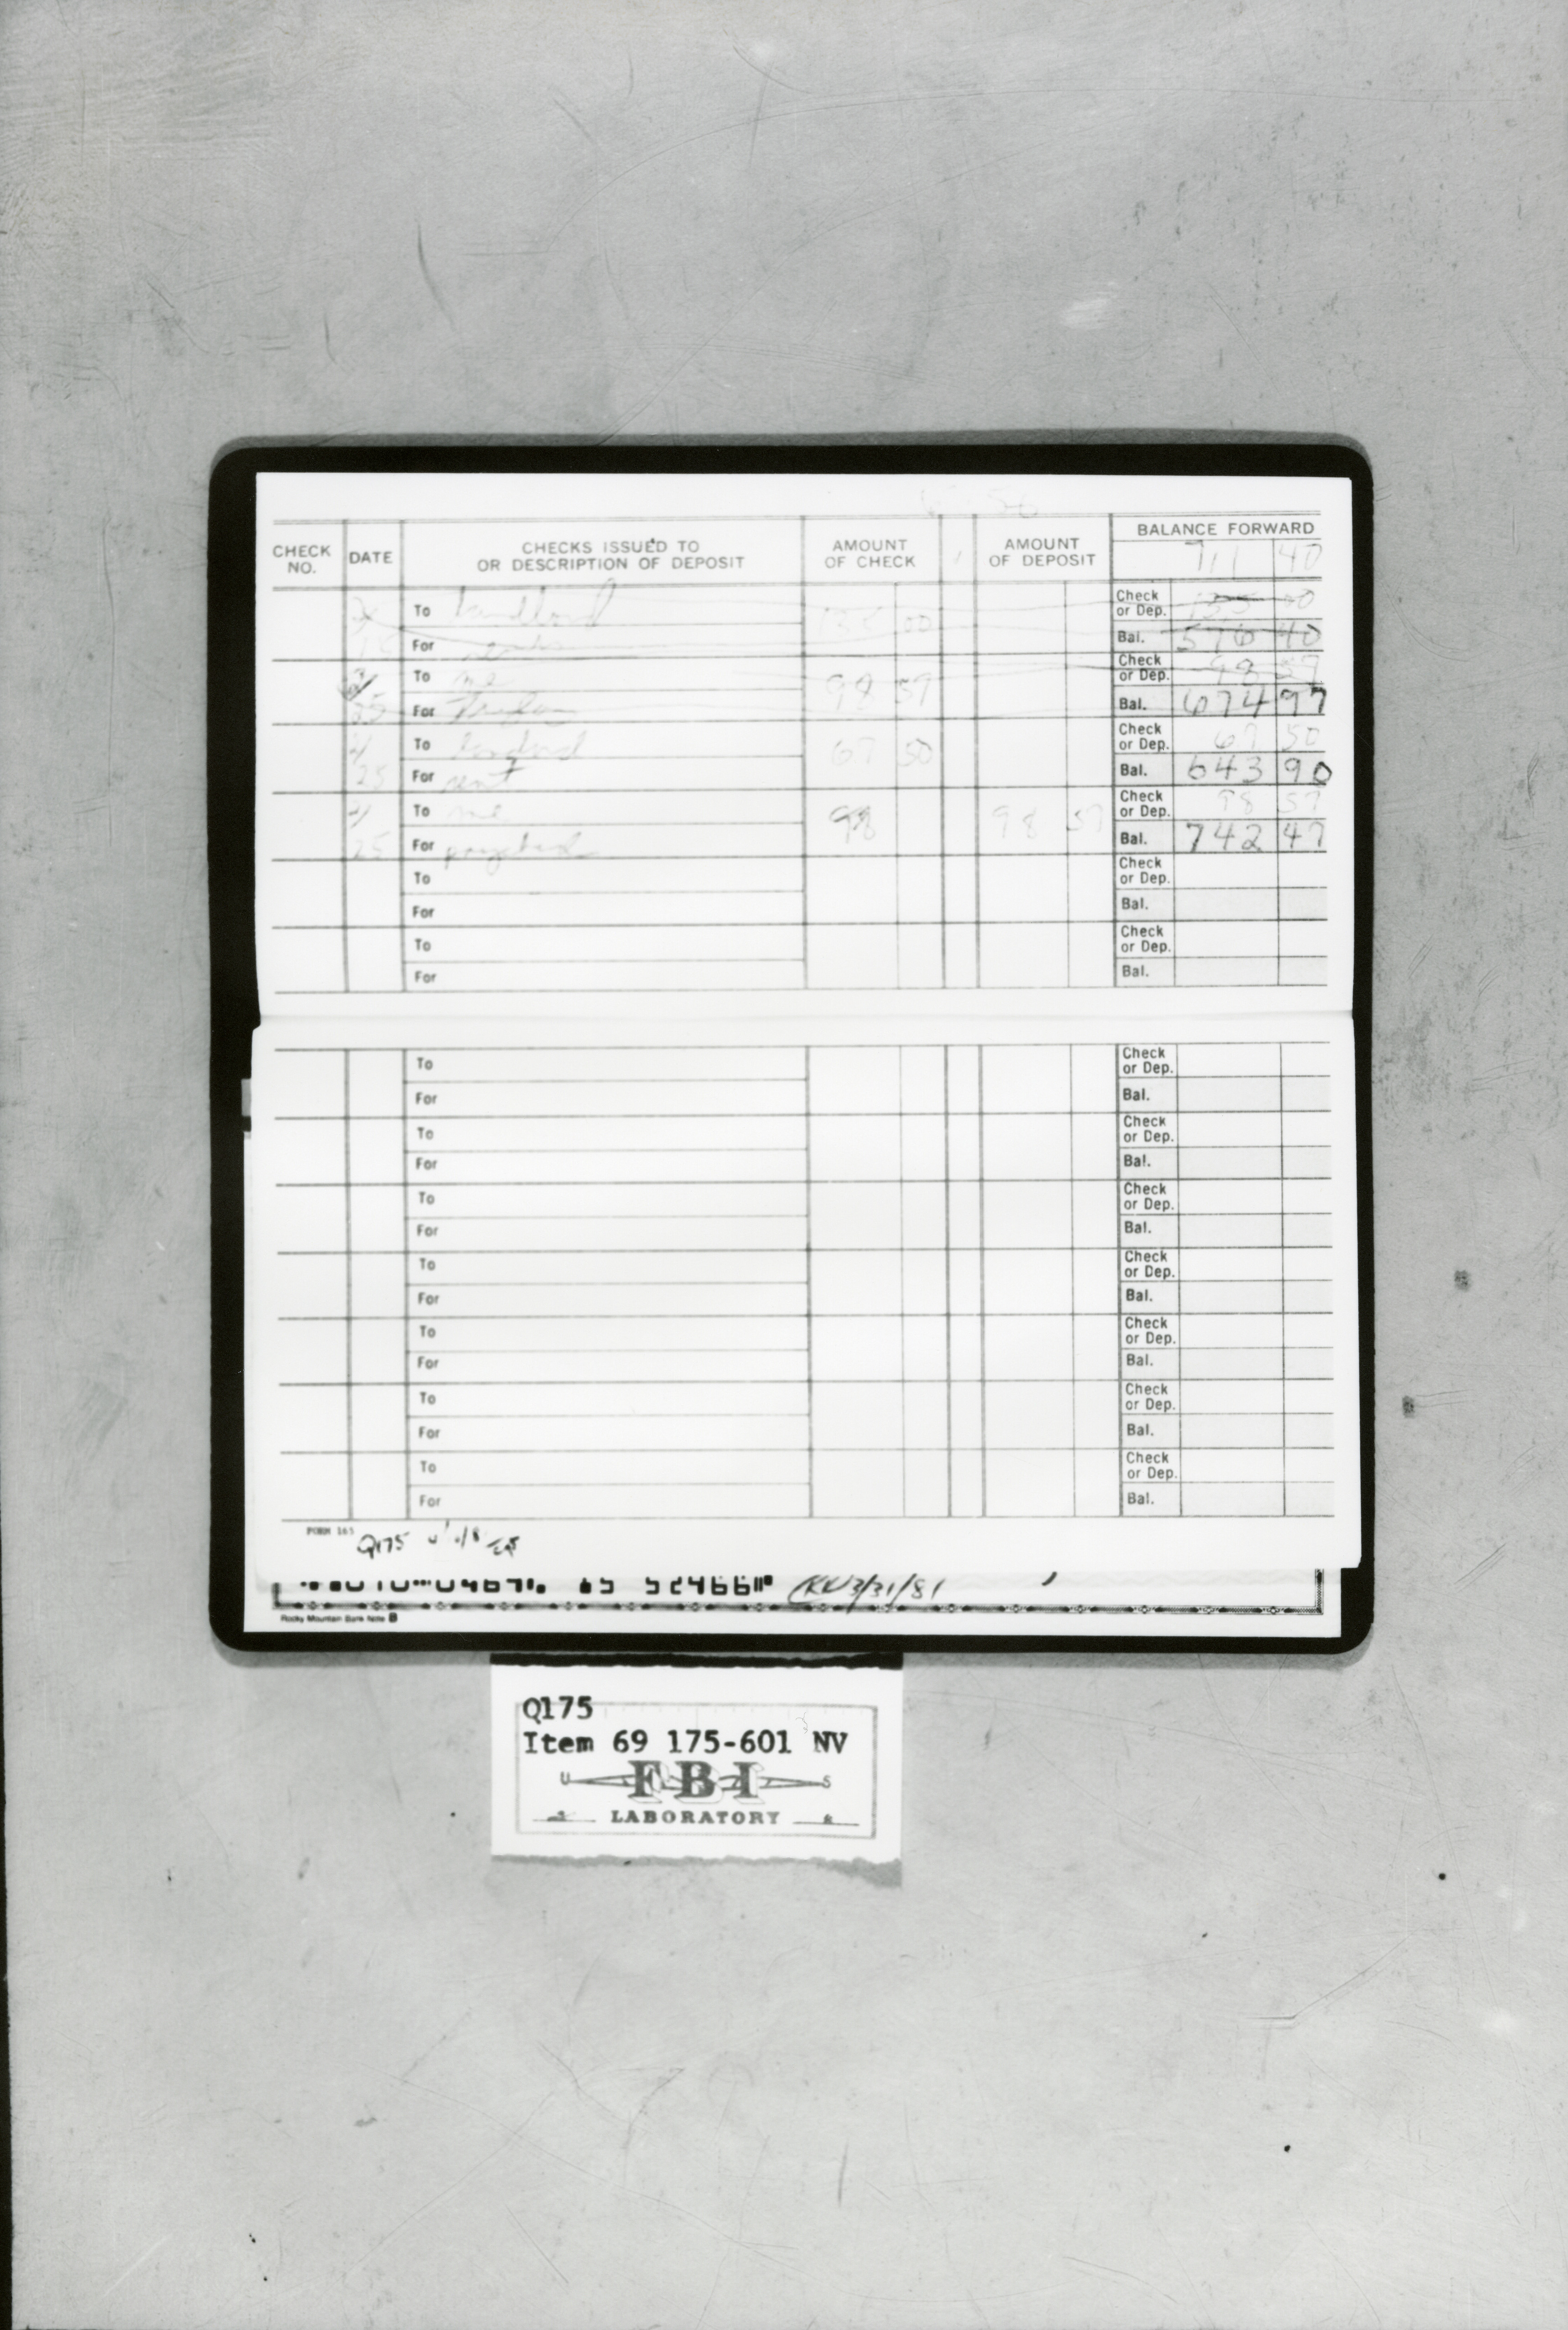 CHECK NO. DATE CHECKS ISSUED TO OR DESCRIPTION OF DEPOSIT AMOUNT OF CHECK AMOUNT OF DEPOSIT BALANCE FORWARD
711 40
To landlord 135 00 Check or Dep. 135 00
For Bal. 576 40
To me 98 57 Check or Dep. 98 57
25 For Bal. 674 97
To 67 50 Check or Dep. 67 50
25 For rent Bal. 643 90
To me 98 98 57 Check or Dep. 98 57
25 For Bal. 742 47
To Check or Dep.
For Bal.
To Check or Dep.
For Bal.
To Check or Dep.
For Bal.
To Check or Dep.
For Bal.
To Check or Dep.
For Bal.
To Check or Dep.
For Bal.
To Check or Dep.
For Bal.
To Check or Dep.
For Bal.
To Check or Dep.
For Bal.
FORM 165
Q175
3/31/81
Rocky Mountain Bank Note
Q175
Item 69 175-601 NV
U FBI S
LABORATORY